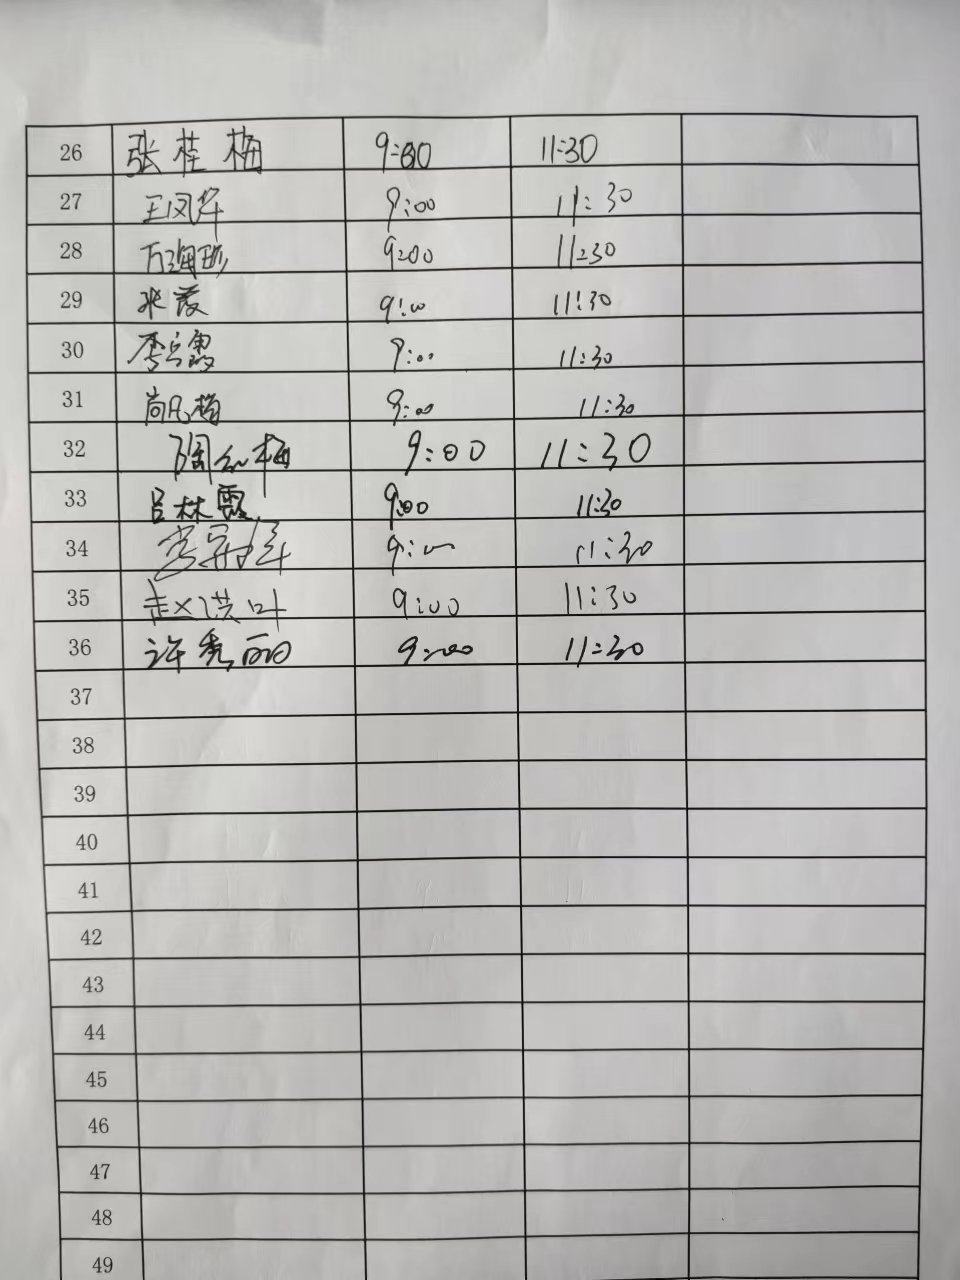 26 张桂梅 9:00 11:30
27 王凤 9:00 11:30
28 万 9:00 11:30
29 张霞 9:00 11:30
30 李 9:00 11:30
31 尚凡梅 9:00 11:30
32 陶红梅 9:00 11:30
33 吕林霞 9:00 11:30
34 9:00 11:30
35 赵洪叶 9:00 11:30
36 许秀丽 9:00 11:30
37
38
39
40
41
42
43
44
45
46
47
48
49